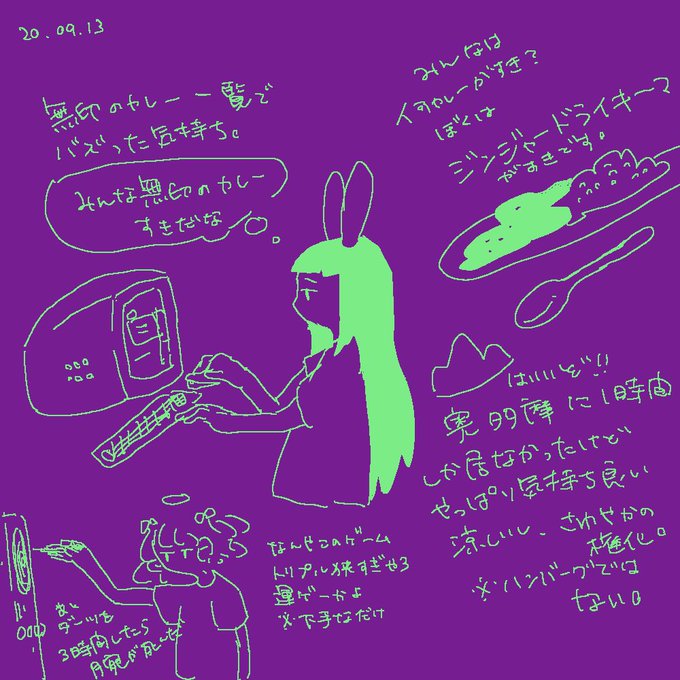 20.09.13
無印のカレー一覧で
バズった気持ち。
みんな無印のカレー
すきだな
みんなは
何カレーがすき?
ぼくは
ジンジャードライキーマ
がすきです。
はいいぞ!!
奥多摩に1時間
しか居なかったけど
やっぱり気持ち良い
涼しいし、さわやかの
権化。
※ハンバーグでは
ない。
なんやこのゲーム
トリプル狭すぎやろ
運ゲーかよ
※下手なだけ
ダーツを
3時間したら
腕が死んだ